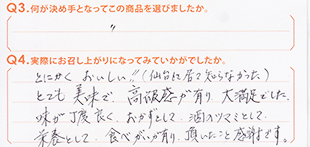 Q3.何が決め手となってこの商品を選びましたか。
〃
Q4.実際にお召し上がりになってみていかがでしたか。
とにかく おいしい!!(仙台に居て知らなかった)
とても美味で、高級感が有り 大満足でした。
味が丁度良く、おかずとして、酒のツマミとして
栄養として、食べがいが有り、頂いたこと感謝です。